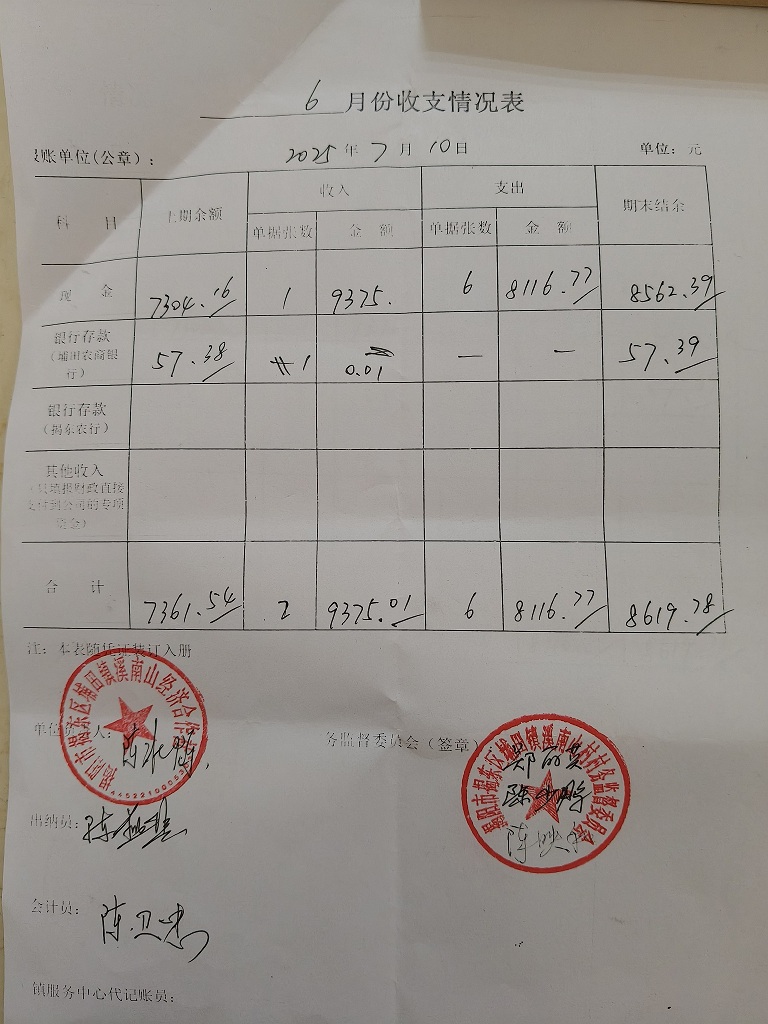 6 月份收支情况表
账单位(公章): 2025 年 7 月 10 日 单位: 元
科 目 上期余额 收入 支出 期末结余
单据张数 金 额 单据张数 金 额
现 金 7304.16 1 9375. 6 8116.77 8562.39
银行存款 57.38 1 0.01 — — 57.39
(埔田农商银
行)
银行存款
(揭东农行)
其他收入
填报财政直接
付到公司的专项
资金)
合 计 7361.54 2 9375.01 6 8116.77 8619.78
注: 本表随凭证装订入册
揭阳市揭东区埔田镇溪南山经济合作
单位负责人: 陈
务监督委员会(签章)
揭阳市揭东区埔田镇溪南山村村务监督委员会
郑
陈
陈
出纳员: 陈
会计员: 陈卫忠
镇服务中心代记账员: